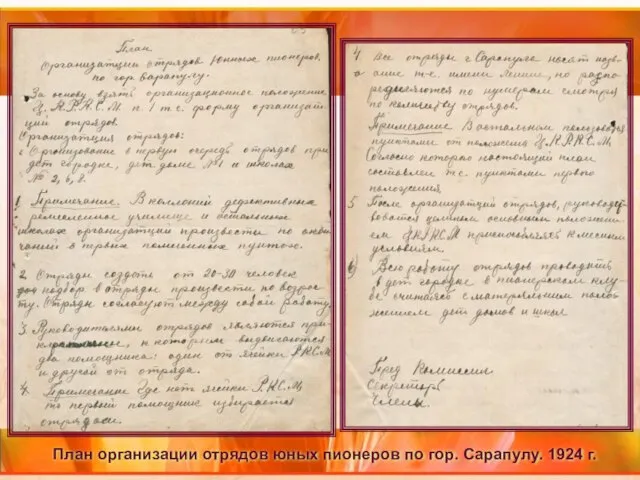 План
Организации отрядов Юных пионеров
по гор Сарапулу.
За основу взять организационное положение
Ц.К.Р.К.С.М. п. 1 т.е. форму организа-
ций отрядов.
Организация отрядов:
1. Организование в первую очередь отрядов при
дет городке, дет доме №1 и школах
№ 2, 6, 8.
Примечание. В колонии дефективных
ремесленное училище и остальных
школах организации произвести по окон-
чании в трёх помещенных пунктов.
2. Отряды создать от 20-30 человек
подбор в отряды произвести по возрас-
ту. Отряды согласуют между собой работу.
3. Руководителями отрядов являются при-
к которым выдвигаются
два помощника: один от ячейки Р.К.С.М.
и другой от отряда.
4. Примечание Где нет ячейки Р.К.С.М,
то первый помощник избирается
отрядом.
4. Все отряды г. Сарапула носят назв-
ание т-е. имени Ленина, но распо-
ределяются по нумерам смотря
по количеству отрядов.
Примечание В остальном пользоваться
пунктами от положения Ц.К.Р.К.С.М,
Согласно которого настоящий план
составлен т.е. пунктами первого
положения
5. После организации отрядов, руководст-
воваться целиком основным положени-
ем ЦКРКСМ приспособляясь к местным
условиям.
6) Всю работу отрядов проводить
в дет городке в пионерском клу-
бе считаясь с материальным поло-
жением дет домов и школ
Пред Комиссии
Секретарь
Члены.
План организации отрядов юных пионеров по гор. Сарапулу. 1924 г.